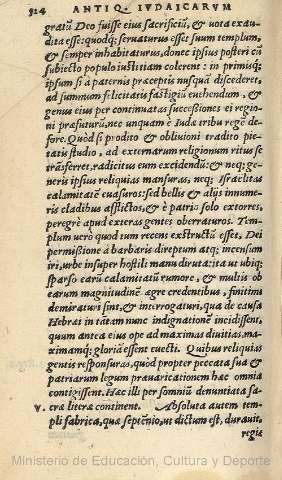 324 ANTIQ. IVDAICARVM
gratū Deo fuisse eius sacrificiū, & uota exau-
dita esse: quodq; seruaturus esset suum templum,
& semper inhabitaturus, donec ipsius posteri cū
subiecto populo iustitiam colerent in primisq;
ipsum si à paternis præceptis nusquā discederet,
ad summum felicitatis fastigiū euehendum, &
genus eius per continuatas successiones ei regio
ni præsuturū, nec unquam è Iuda tribu regē de-
fore. Quòd si prodito & obliuioni tradito pie-
tatis studio, ad externarum religionum ritus se
trāsferret, radicitus eum excidendū: & neq; ge-
neris ipsius reliquias mansuras, neq; Israelitas
calamitatē euasuros: sed bellis & alijs innume-
ris cladibus afflictos, & è patrio solo extorres,
peregrè apud exteras gentes oberraturos. Tem-
plum uerò quod tum recens extructū esset, Dei
permissione à barbaris direptum atq; incensum
iri, urbe insuper hostili manu diruta: ita ut ubiq;
sparso earū calamitatū rumore, & multis ob
earum magnitudinē ægre credentibus, finitimi
demiraturi sint, & interrogaturi, qua de causa
Hebræi in tātam nunc indignationē incidissent,
quum antea eius ope ad maximas diuitias, ma-
ximamq; gloriā essent euecti. Quibus reliquias
gentis responsuras, quòd propter peccata sua &
patriarum legum præuaricationem hæc omnia
contigissent. Hæc illi per somniū denuntiata sa-
v. cræ literæ continent. Absoluta autem tem-
pli fabrica, quæ septēnio, ut dictum est, durauit,
regia
Ministerio de Educación, Cultura y Deporte